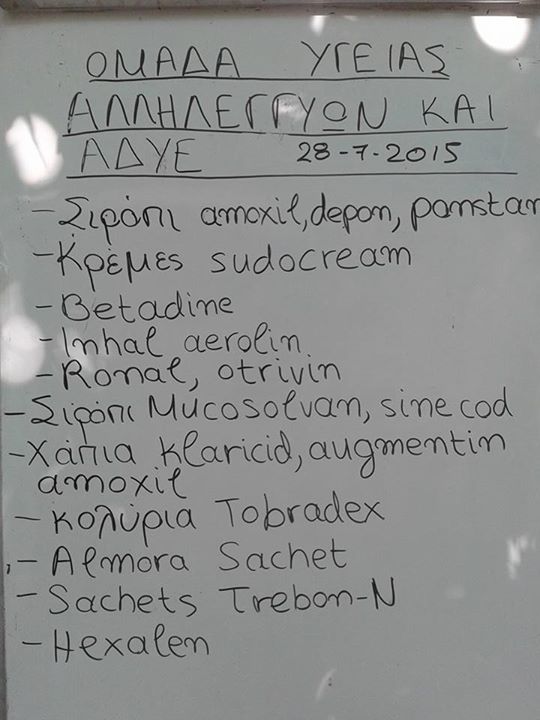 ΟΜΑΔΑ ΥΓΕΙΑΣ
ΑΛΛΗΛΕΓΓΥΩΝ ΚΑΙ
ΑΔΥΕ 28-7-2015
- Σιρόπι amoxil, depon, ponstan
- Κρέμες sudocream
- Betadine
- Inhal aerolin
- Ronal, otrivin
- Σιρόπι Mucosolvan, sinecod
- Χάπια klaricid, augmentin
amoxil
- κολύρια Tobradex
- Almora Sachet
- Sachets Trebon-N
- Hexalen